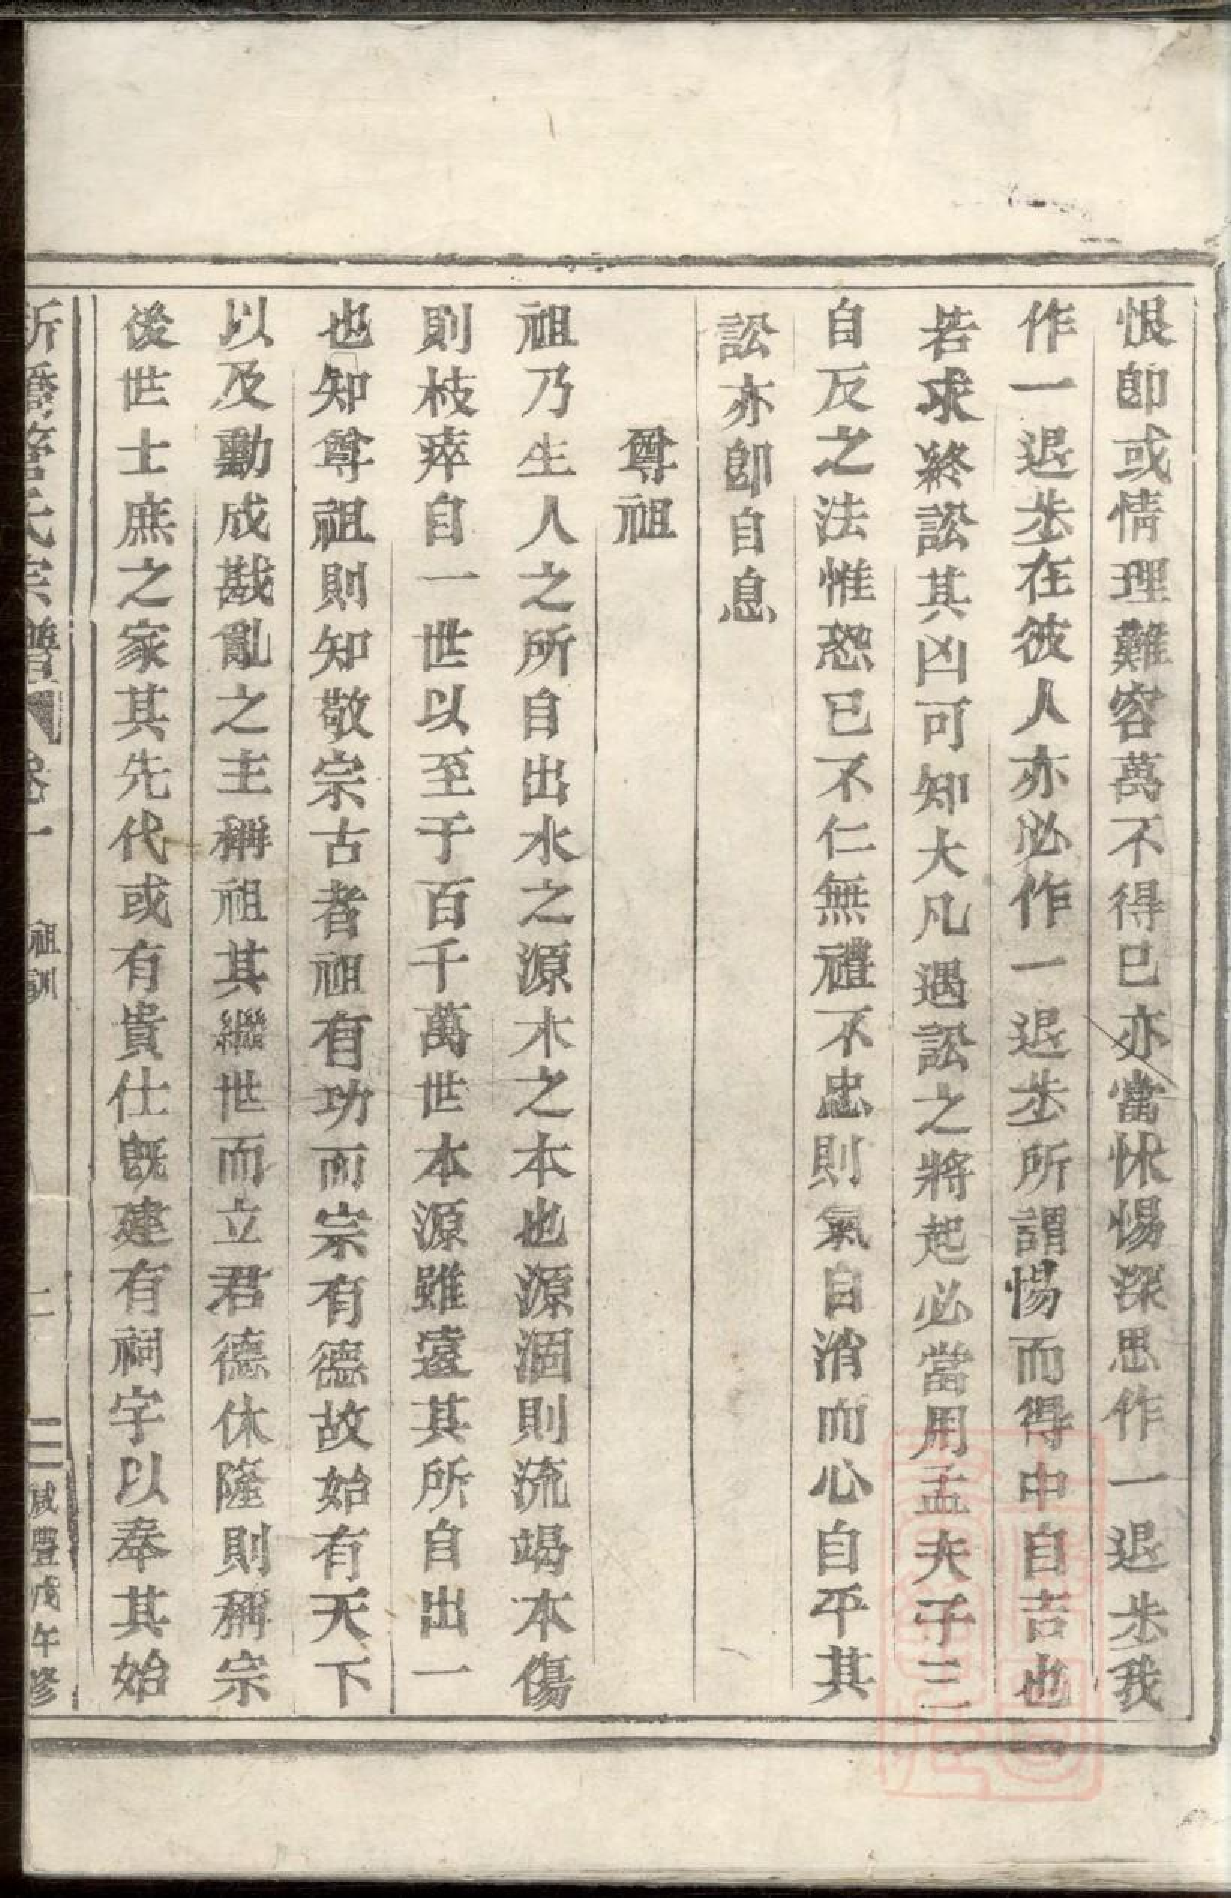 恨卽或情理難容萬不得已亦當怵惕深思作一退步我
作一退步在彼人亦必作一退步所謂惕而得中自吉也
若求終訟其凶可知大凡遇訟之將起必當用孟夫子三
自反之法惟恐已不仁無禮不忠則氣自消而心自平其
訟亦卽自息
尊祖
祖乃生人之所自出水之源木之本也源涸則流竭本傷
則枝瘁自一世以至于百千萬世本源雖遠其所自出一
也知尊祖則知敬宗古者祖有功而宗有德故始有天下
以及勳成戡亂之主稱祖其繼世而立君德休隆則稱宗
後世士庶之家其先代或有貴仕旣建有祠宇以奉其始
管氏宗譜 卷一 祖訓 二 咸豐戊午修